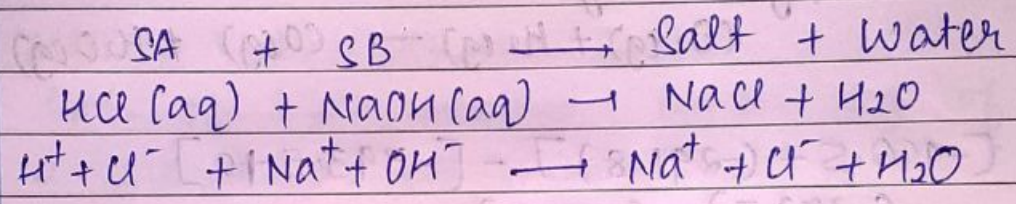 SA + SB → Salt + Water
HCl (aq) + NaOH (aq) → NaCl + H2O
H⁺ + Cl⁻ + Na⁺ + OH⁻ → Na⁺ + Cl⁻ + H2O